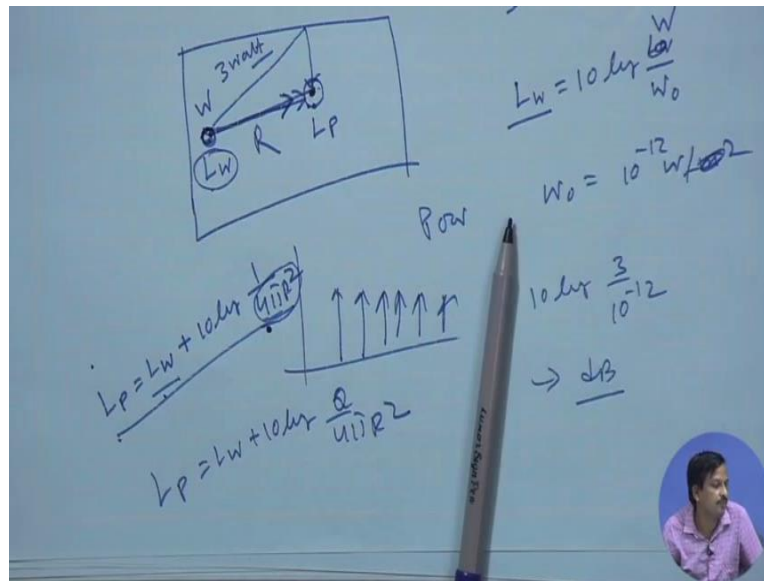 3 watt
W
R
LP
LW
LW = 10 log W/W0
W0 = 10^-12 W/
POW
10 log 3/10^-12
→ dB
LP = LW + 10 log 1/4πR^2
LP = LW + 10 log Q/4πR^2